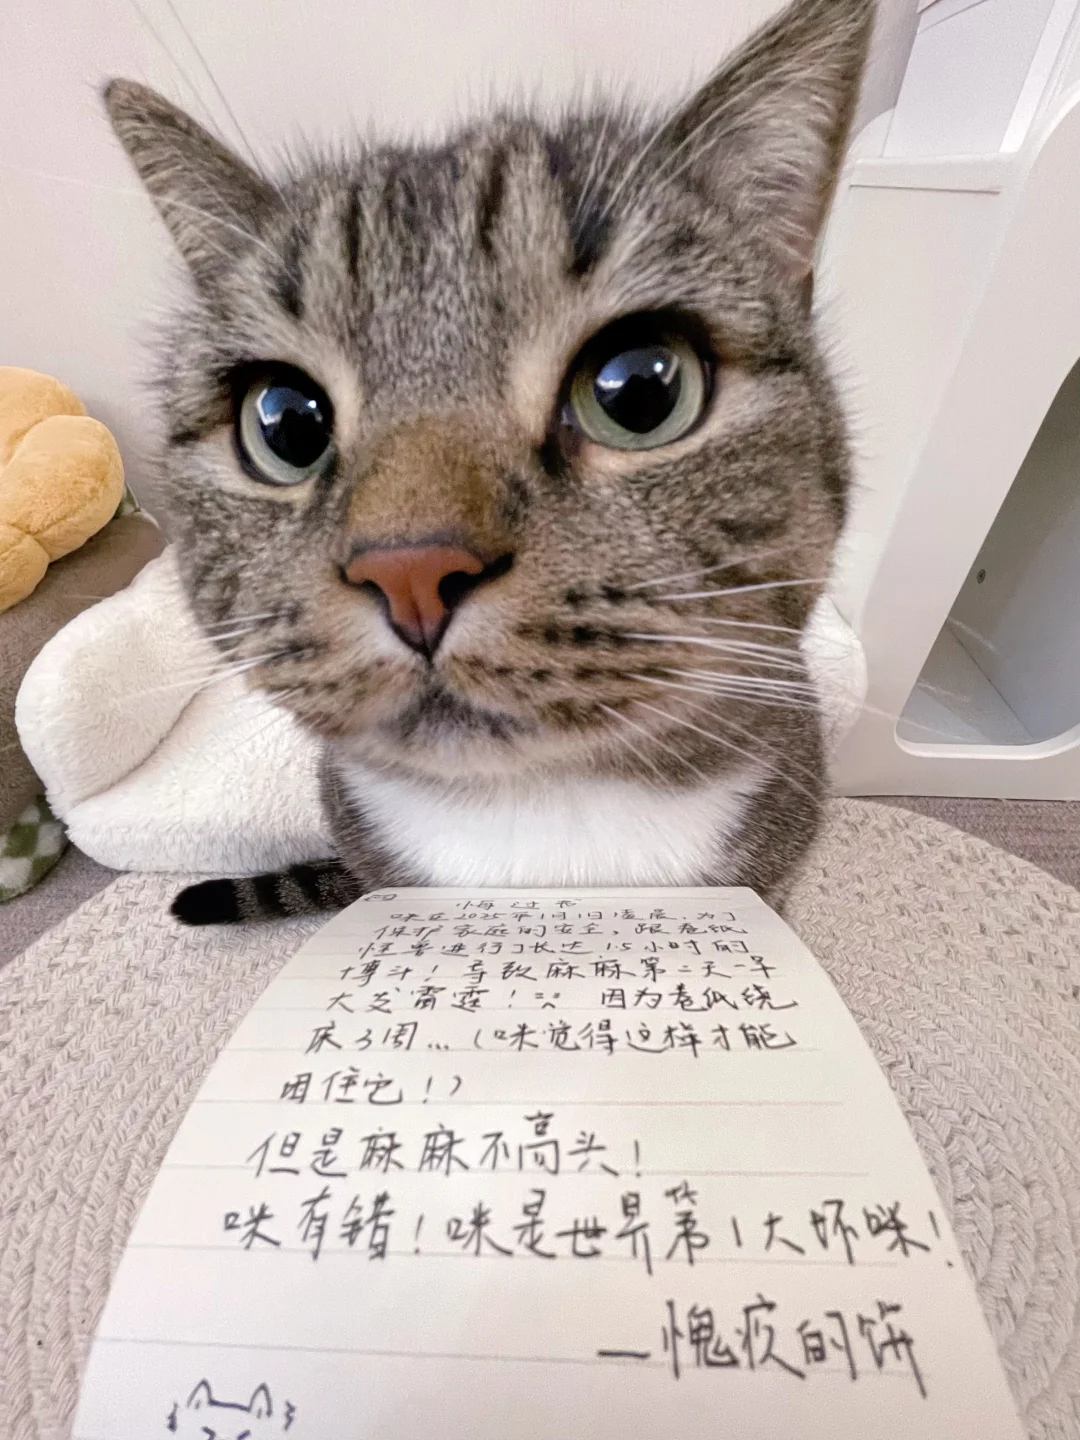 悔过书
咪在2025年1月1日凌晨,为了
保护家庭的安全,跟卷纸
怪兽进行了长达1.5小时的
搏斗!导致麻麻第二天一早
大发雷霆!因为卷纸绕
床3周...(咪觉得这样才能
困住它!)
但是麻麻不高兴!
咪有错!咪是世界第1大坏咪!
—愧疚的饼